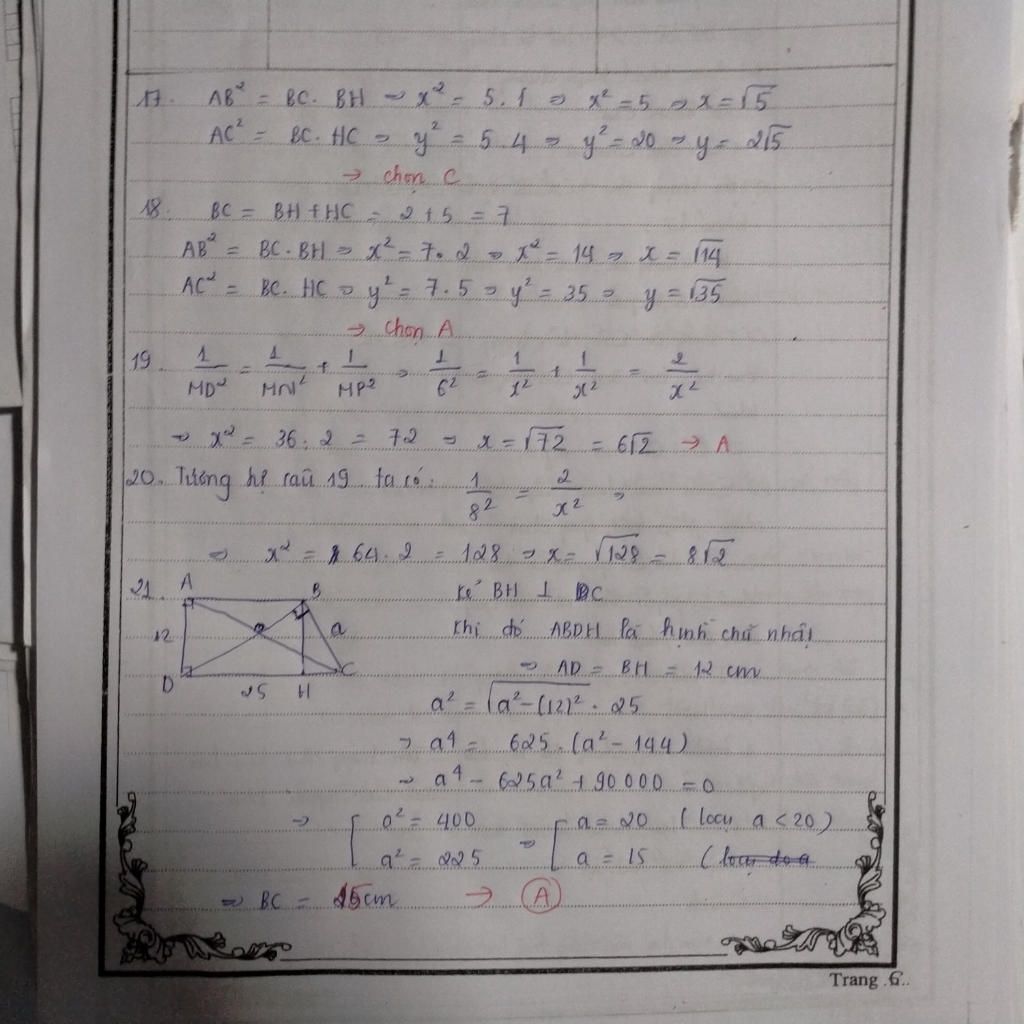 17. AB² = BC. BH ⇒ x² = 5.1 ⇒ x² = 5 ⇒ x = √5
AC² = BC. HC ⇒ y² = 5.4 ⇒ y² = 20 ⇒ y = 2√5
→ chọn C
18. BC = BH + HC = 2 + 5 = 7
AB² = BC. BH ⇒ x² = 7.2 ⇒ x² = 14 ⇒ x = √14
AC² = BC. HC ⇒ y² = 7.5 ⇒ y² = 35 ⇒ y = √35
→ chọn A
19. 1/MD² = 1/MN² + 1/MP² ⇒ 1/6² = 1/x² + 1/x² = 2/x²
⇒ x² = 36.2 = 72 ⇒ x = √72 = 6√2 → A
20. Tương câu 19 ta có: 1/8² = 2/x² ⇒
⇒ x² = 64.2 = 128 ⇒ x = √128 = 8√2
21. A B
12 a
D 25 H C
Kẻ BH ⊥ DC
Khi đó ABDH là hình chữ nhật
⇒ AD = BH = 12 cm
a² = √(a² - (12)²) . 25
⇒ a⁴ = 625.(a² - 144)
⇒ a⁴ - 625a² + 90000 = 0
⇒ [ a² = 400 ⇒ [ a = 20 (loại a < 20)
a² = 225 a = 15 (loại do a
⇒ BC = 15cm → A
Trang .6..